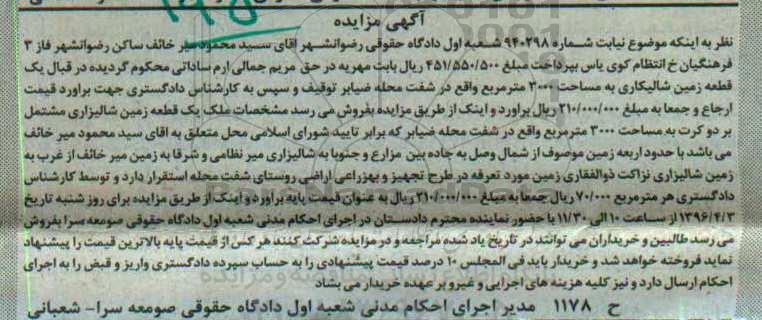 ۱۹۵
آگهی مزایده
نظر به اینکه موضوع نیابت شماره ۹۴۰۲۹۸ شعبه اول دادگاه حقوقی رضوانشهر آقای سید محمود میر خائف ساکن رضوانشهر فاز ۳
فرهنگیان خ انتظام کوی یاس بپرداخت مبلغ ۴۵۱/۵۵۰/۵۰۰ ریال بابت مهریه در حق مریم جمالی ارم ساداتی محکوم گردیده در قبال یک
قطعه زمین شالیکاری به مساحت ۳۰۰۰ مترمربع واقع در شفت محله ضیابر توقیف و سپس به کارشناس دادگستری جهت براورد قیمت
ارجاع و جمعا به مبلغ ۲۱۰/۰۰۰/۰۰۰ ریال براورد و اینک از طریق مزایده بفروش می رسد مشخصات ملک یک قطعه زمین شالیزاری مشتمل
بر دو کرت به مساحت ۳۰۰۰ مترمربع واقع در شفت محله ضیابر که برابر تایید شورای اسلامی محل متعلق به اقای سید محمود میر خائف
می باشد با حدود اربعه زمین موصوف از شمال وصل به جاده بین مزارع و جنوبا به شالیزاری میر نظامی و شرقا به زمین میر خائف از غرب به
زمین شالیزاری نزاکت ذوالفقاری زمین مورد تعرفه در طرح تجهیز و بهزراعی اراضی روستای شفت محله استقرار دارد و توسط کارشناس
دادگستری هر مترمربع ۷۰/۰۰۰ ریال جمعا به مبلغ ۲۱۰/۰۰۰/۰۰۰ ریال به عنوان قیمت پایه براورد و اینک از طریق مزایده برای روز شنبه تاریخ
۱۳۹۶/۴/۳ از ساعت ۱۰ الی ۱۱/۳۰ با حضور نماینده محترم دادستان در اجرای احکام مدنی شعبه اول دادگاه حقوقی صومعه سرا بفروش
می رسد طالبین و خریداران می توانند در تاریخ یاد شده مراجعه و در مزایده شرکت کنند هر کس از قیمت پایه بالاترین قیمت را پیشنهاد
نماید فروخته خواهد شد و خریدار باید فی المجلس ۱۰ درصد قیمت پیشنهادی را به حساب سپرده دادگستری واریز و قبض را به اجرای
احکام ارسال دارد و نیز کلیه هزینه های اجرایی و غیرو بر عهده خریدار می بشاد
ح ۱۱۷۸ مدیر اجرای احکام مدنی شعبه اول دادگاه حقوقی صومعه سرا- شعبانی